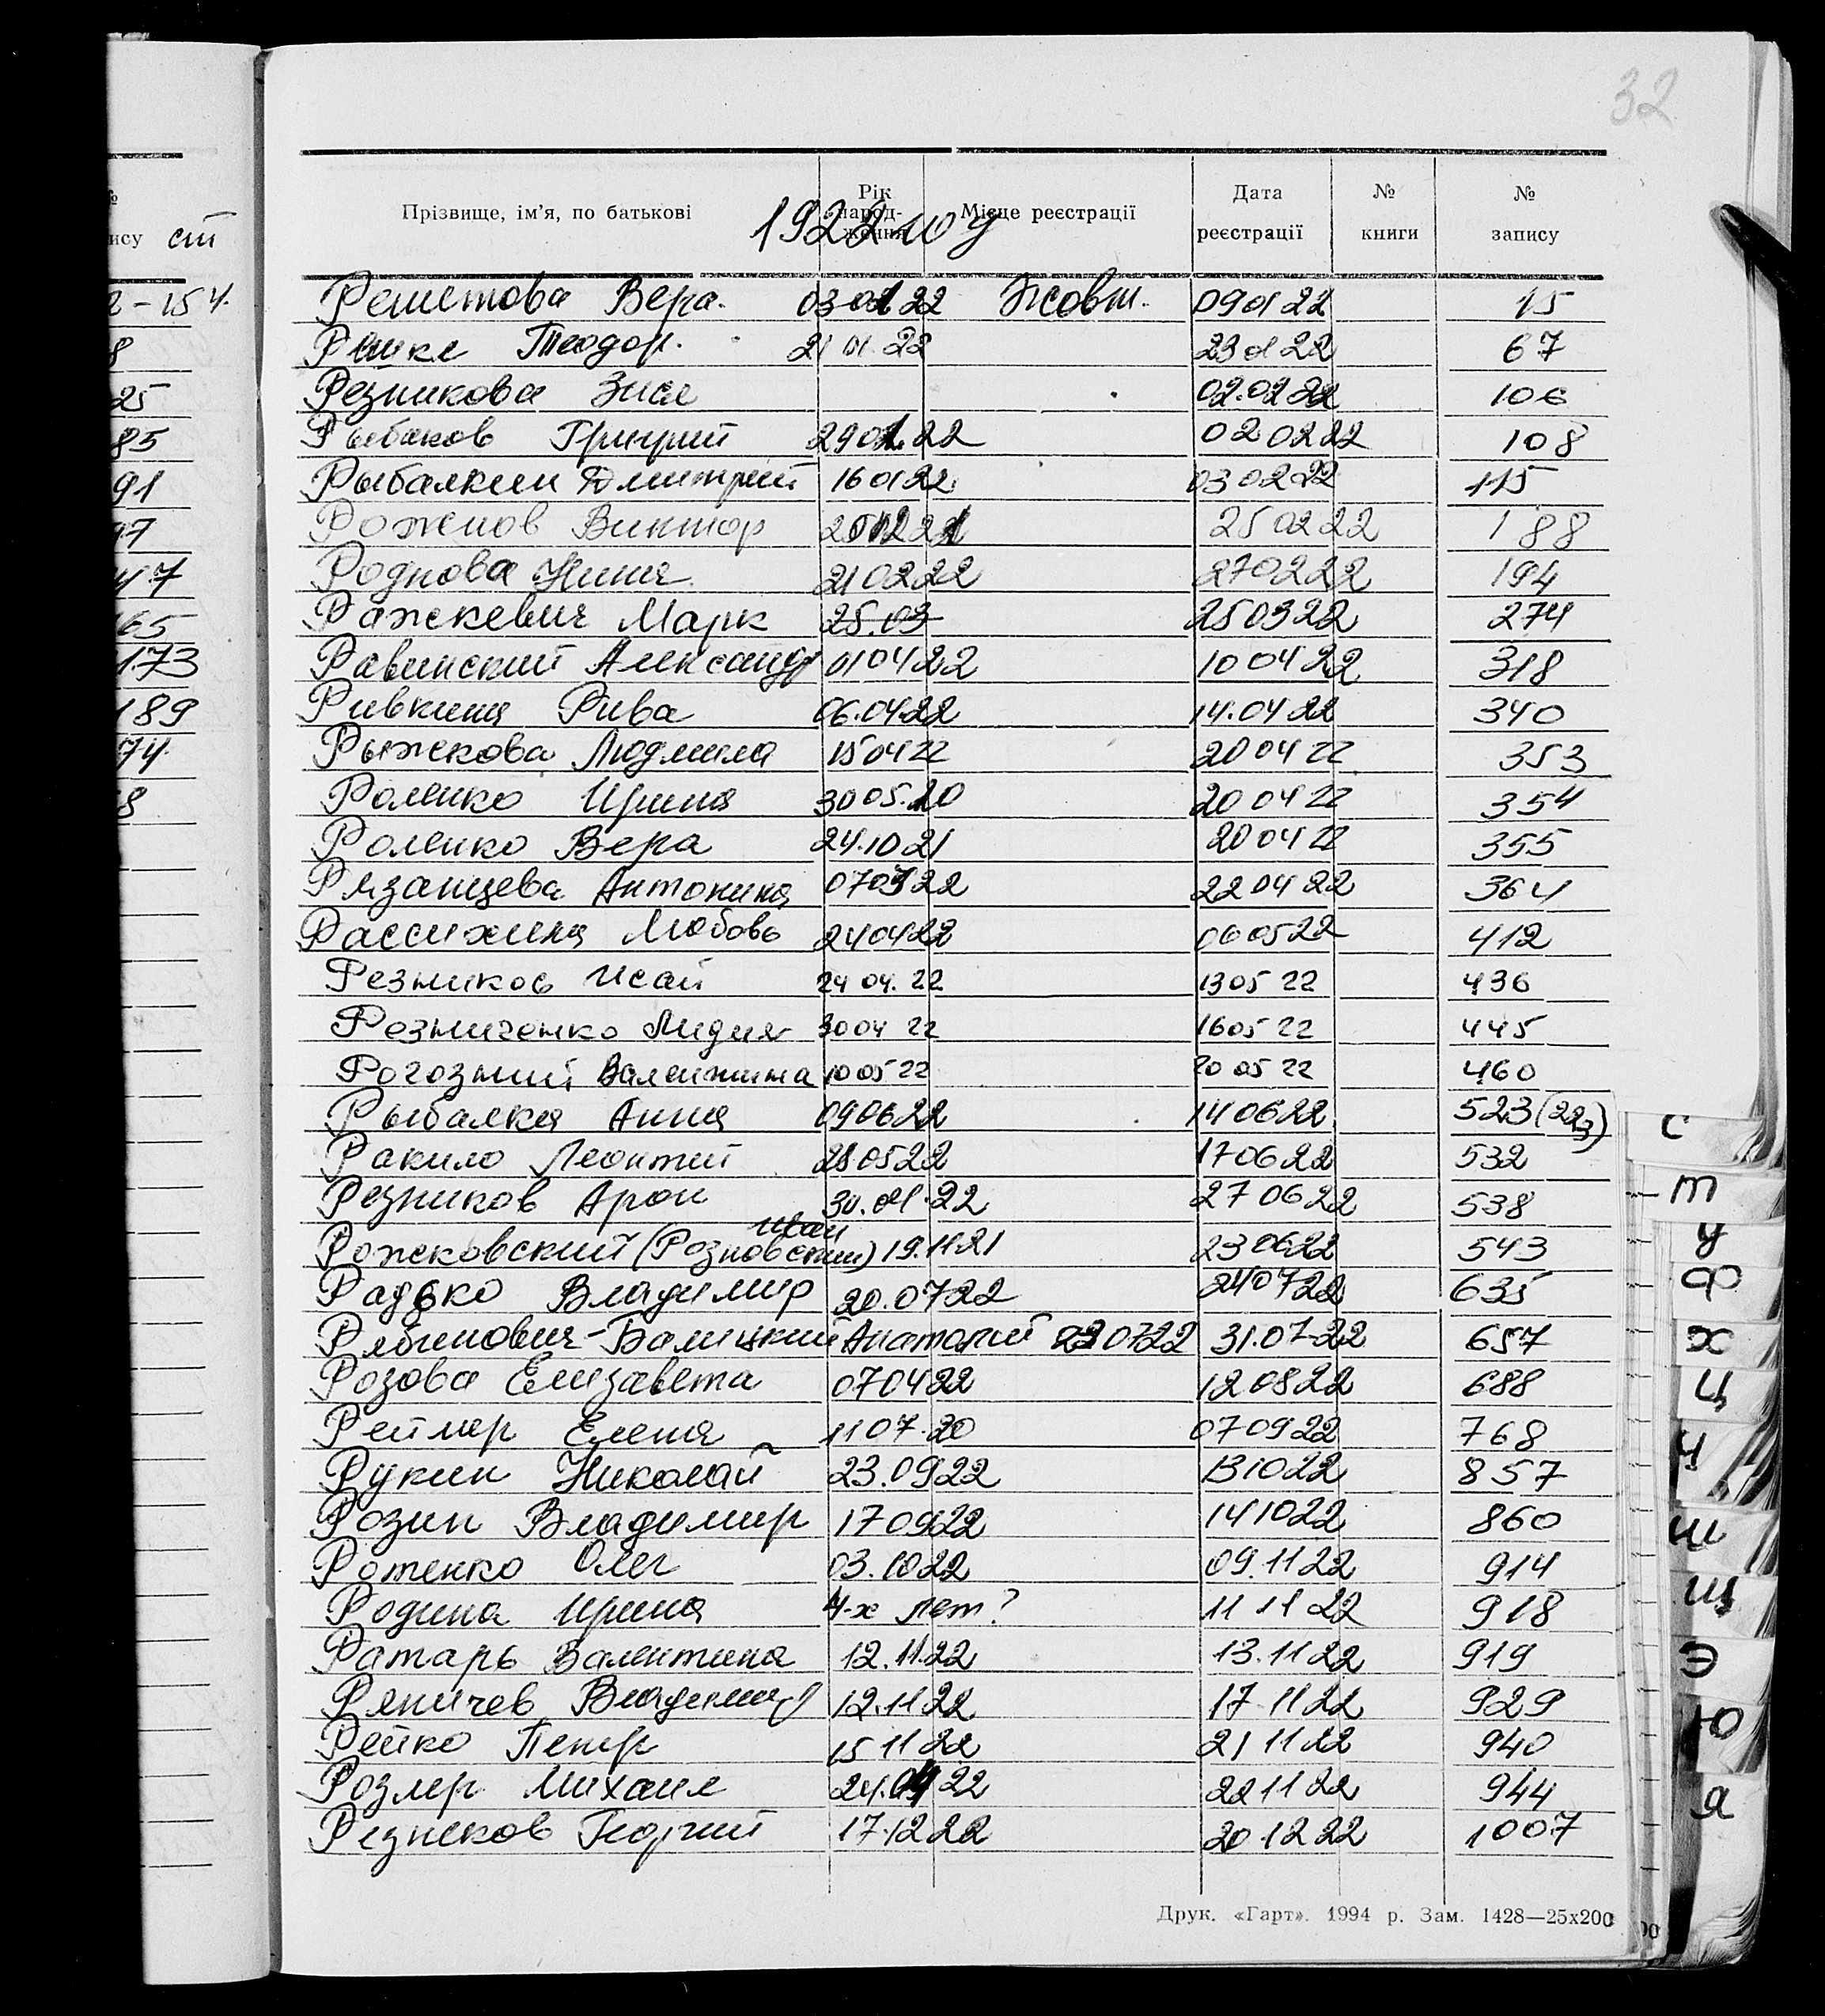 32
Прізвище, ім'я, по батькові Рік народження Місце реєстрації Дата реєстрації № книги № запису
1922 юу
ису ст
2-154.
8
25
85
91
97
47
65
173
189
74
8
Решетова Вера. 03 01 22 Жовт. 09 01 22 15
Теодор. 21 01. 22 23 01 22 67
Резникова 02.02 22 106
Рыбаков Григорий 29 01. 22 02 02 22 108
Рыбалкин Дмитрий 16 01 22 03 02 22 115
Роженов Виктор 25 02 22 188
Роднова Нина 21 02 22 27 02 22 194
Ражкевич Марк 25.03 25 03 22 274
Равинский Александр 01 04 22 10 04 22 318
Ривкина Рива 06.04.22 14.04 22 340
Рыжкова Людмила 15 04 22 20 04 22 353
Роленко Ирина 30 05.20 20 04 22 354
Роленко Вера 24.10 21 20 04 22 355
Рязанцева Антонина 07 03 22 22 04 22 364
Рассихина Любовь 24 04 22 06 05 22 412
Резников Исай 24 04. 22 13 05 22 436
Резниченко Лидия 30 04 22 16 05 22 445
Рогозний Валентина 10 05 22 20 05 22 460
Рыбалка Анна 09 06 22 14 06 22 523 (223)
Ракило Леонтий 28 05 22 17 06 22 532
Резников Арон 30.04.22 27 06 22 538
Иван
Рожковский (Розновский) 19.11 21 23 06 22 543
Радько Владимир 20.07 22 24 07 22 635
Рябинович-Балицкий Анатолий 23 07 22 31.07-22 657
Розова Елизавета 07 04 22 12 08 22 688
Реймер Елена 11 07.20 07 09 22 768
Рукин Николай 23.09 22 13 10 22 857
Розин Владимир 17 09 22 14 10 22 860
Роженко Олег 03.10 22 09.11 22 914
Родина Ирина 4-х лет? 11 11 22 918
Ратарь Валентина 12.11.22 13.11 22 919
Ряпичев Владимир 12.11 22 17-11 22 929
Рейко Петр 15 11 22 21 11 22 940
Розмер Михаил 24.04 22 22 11 22 944
Резнеков Георгий 17.12 22 20 12 22 1007
Друк. «Гарт». 1994 р. Зам. 1428—25х200
С
Т
У
Ф
Х
Ц
Ч
Ш
Щ
Э
Ю
Я